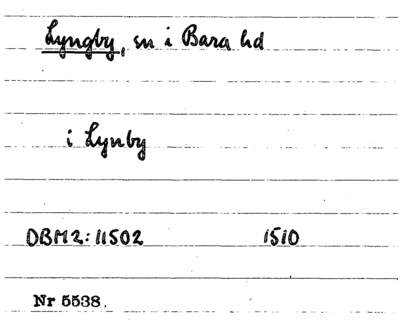 Lyngby, sn i Bara hd
i Lynby
DBM2:11502 1510
Nr 5538.